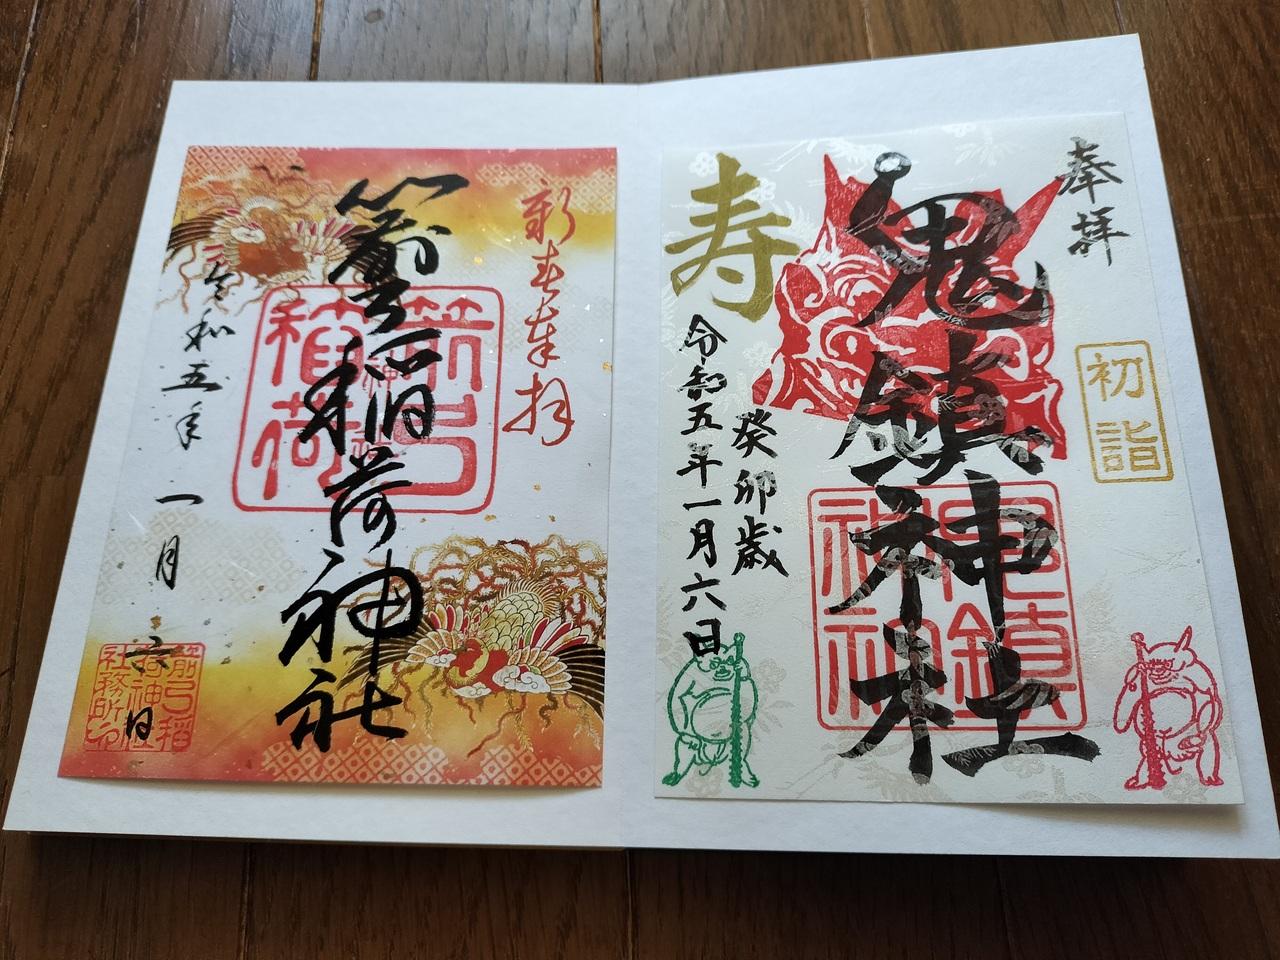 奉拝
初詣
鬼鎮神社
鬼鎮
神社
寿
癸卯歳
令和五年一月六日
新春奉拝
箭弓稲荷神社
箭弓
神社
稲荷
令和五年一月六日
箭弓稲
荷神社
社務所印